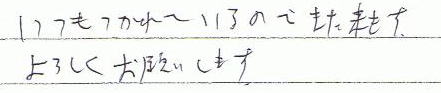 いつもつかれているのでまた来ます。
よろしくお願いします